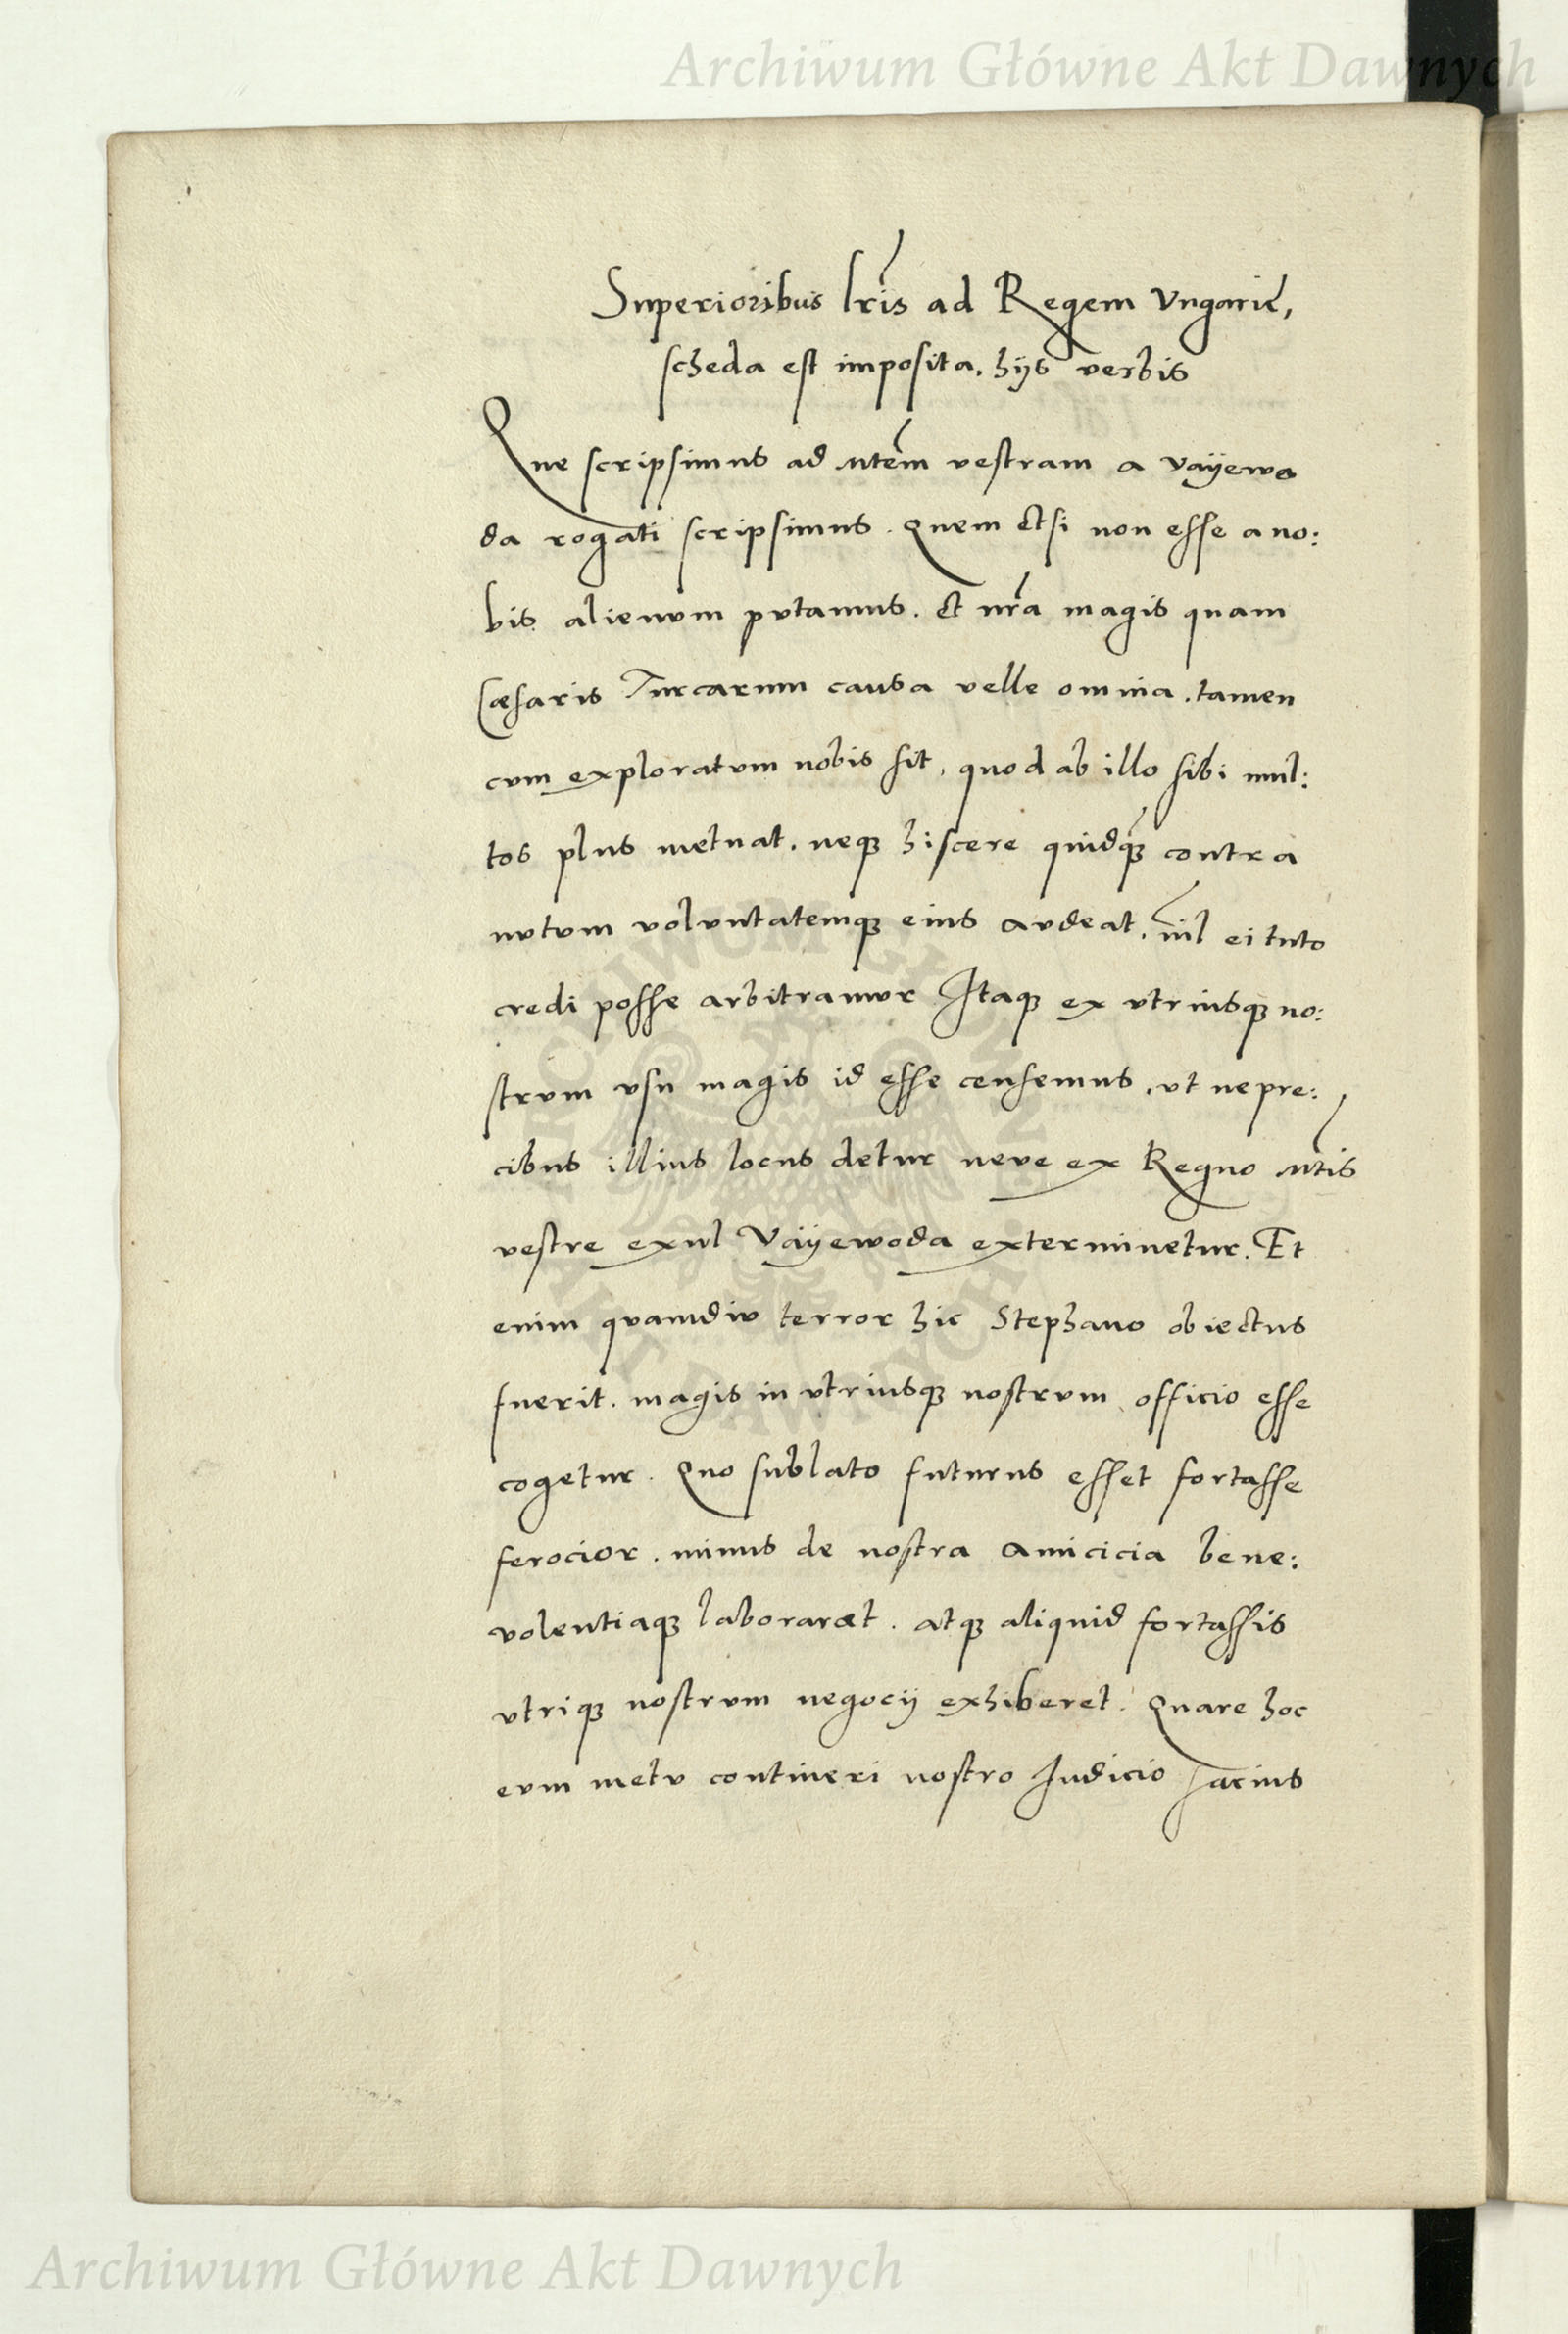 Archiwum Główne Akt Dawnych
Superioribus lris ad Regem Vngarie,
scheda est imposita. hijs verbis
Que scripsimus ad Mtem vestram a Vayewo
da rogati scripsimus. Quem etsi non esse a no:
bis alienum putamus. et nra magis quam
Cæsaris Turcarum causa velle omnia. tamen
cum exploratum nobis sit, quod ab illo sibi mul:
tos plus metuat. neque hiscere quidque contra
nutum voluntatemque eius audeat. nil ei tuto
credi posse arbitramur Itaque ex vtriusque no:
strum vsu magis id esse censemus, vt ne pre:
cibus illius locus detur neve ex Regno Mtis
vestre exul Vayewoda exterminetur. Et
enim quamdiu terror hic Stephano obiectus
fuerit. magis in vtriusque nostrum officio esse
cogetur. Quo sublato futurus esset fortasse
ferocior. minus de nostra amicicia bene:
volentiaque laboraret. atque aliquid fortassis
vtrique nostrum negocij exhiberet. Quare hoc
eum metu contineri nostro Iudicio sacius
ARCHIWUM GŁÓWNE AKT DAWNYCH
Archiwum Główne Akt Dawnych